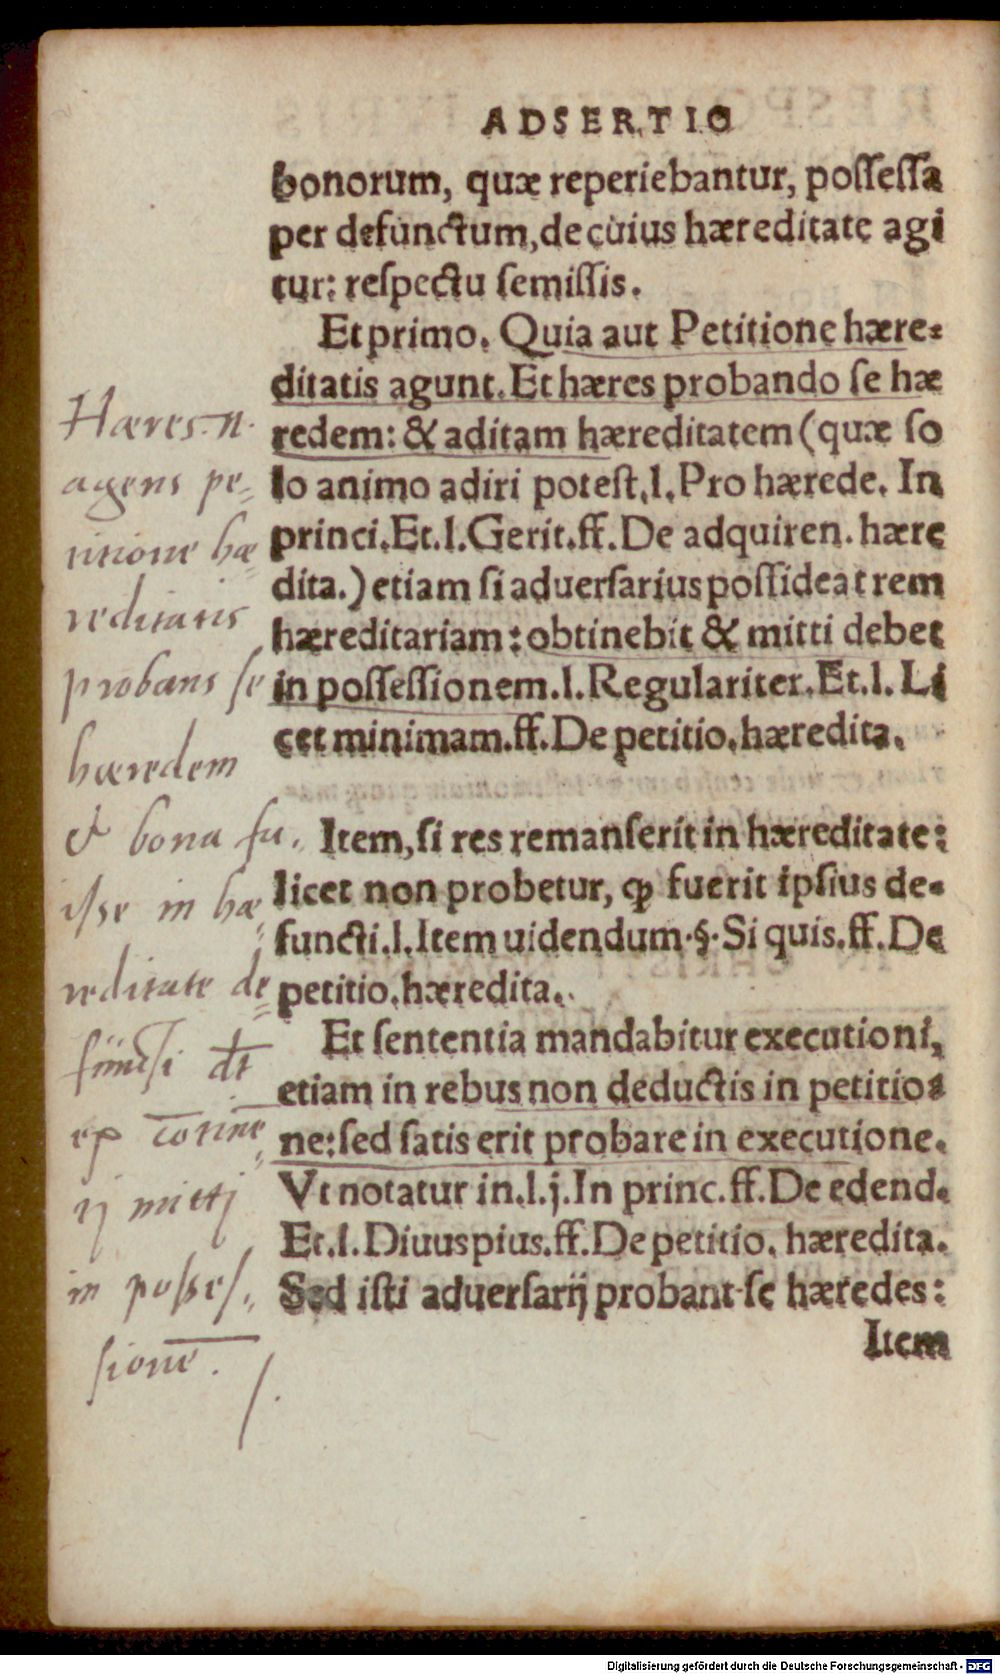 ADSERTIO
bonorum, quæ reperiebantur, possessa
per defunctum, de cuius hæreditate agi
tur: respectu semissis.
Et primo. Quia aut Petitione hære-
ditatis agunt. Et hæres probando se hæ
redem: & aditam hæreditatem (quæ so
lo animo adiri potest, l. Pro hærede. In
princi. Et. l. Gerit. ff. De adquiren. hære
dita.) etiam si aduersarius possideat rem
hæreditariam: obtinebit & mitti debet
in possessionem. l. Regulariter. Et. l. Li
cet minimam. ff. De petitio. hæredita.
Item, si res remanserit in hæreditate:
licet non probetur, ꝙ fuerit ipsius de-
functi. l. Item uidendum. §. Si quis. ff. De
petitio. hæredita.
Et sententia mandabitur executioni,
etiam in rebus non deductis in petitio-
ne: sed satis erit probare in executione.
Vt notatur in. l. j. In princ. ff. De edend.
Et. l. Diuus pius. ff. De petitio. hæredita.
Sed isti aduersarij probant se hæredes:
Item
Hæres. n.
agens pe=
titione hæ=
reditatis
probans se
hæredem
& bona fu.
isse in hæ=
reditate de=
functi
mitti
in posses.
sionē.
Digitalisierung gefördert durch die Deutsche Forschungsgemeinschaft - DFG